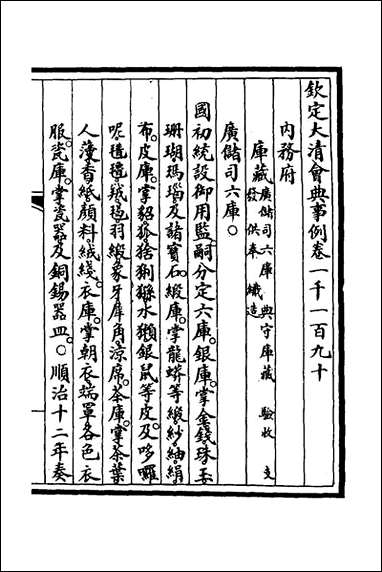 欽定大清會典事例卷一千一百九十
內務府
庫藏廣儲司六庫 典守庫藏 驗收 支
發 供奉 織造
廣儲司六庫○
國初統設御用監嗣分定六庫。銀庫。掌金錢珠玉
珊瑚瑪瑙及諸寶石。緞庫。掌龍蟒等緞紗紬絹
布。皮庫。掌貂狐猞猁猻水獺銀鼠等皮。及哆囉
呢氆氌羢氊羽緞象牙犀角涼席。茶庫。掌茶葉
人蓡香紙顏料絨綫。衣庫。掌朝衣端罩各色衣
服。瓷庫。掌瓷器及銅錫器皿。○順治十二年奏